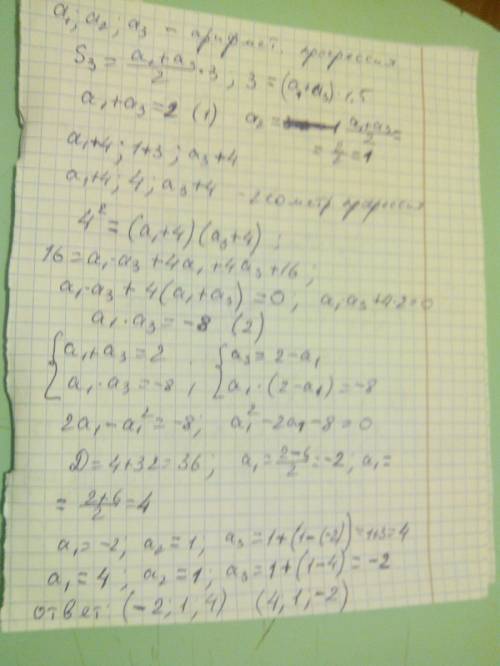 a₁; a₂; a₃ – арифмет. прогрессия
S₃ = (a₁+a₃)/2 · 3, 3 = (a₁+a₃) · 1,5
a₁+a₃ = 2 (1) a₂ = (a₁+a₃)/2 =
= 2/2 = 1
a₁+4; 1+3; a₃+4
a₁+4; 4; a₃+4 – геометр прогрессия
4² = (a₁+4)(a₃+4);
16 = a₁·a₃ + 4a₁ + 4a₃ + 16;
a₁·a₃ + 4(a₁+a₃) = 0, a₁a₃+4·2=0
a₁·a₃ = -8 (2)
{ a₁+a₃ = 2 { a₃ = 2-a₁
a₁·a₃ = -8, a₁·(2-a₁) = -8
2a₁ - a₁² = -8; a₁² - 2a₁ - 8 = 0
D = 4+32 = 36; a₁ = (2-6)/2 = -2, a₁ =
= (2+6)/2 = 4
a₁ = -2; a₂ = 1; a₃ = 1+(1-(-2)) = 1+3 = 4
a₁ = 4; a₂ = 1; a₃ = 1+(1-4) = -2
ответ: (-2; 1, 4) (4, 1; -2)